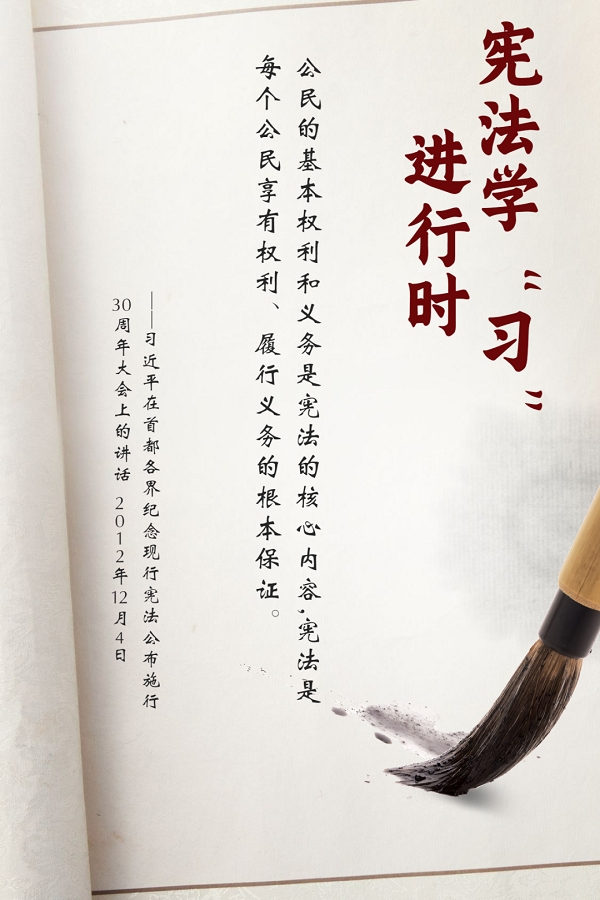 宪法学“习”
进行时
公民的基本权利和义务是宪法的核心内容,宪法是
每个公民享有权利、履行义务的根本保证。
——习近平在首都各界纪念现行宪法公布施行
30周年大会上的讲话 2012年12月4日